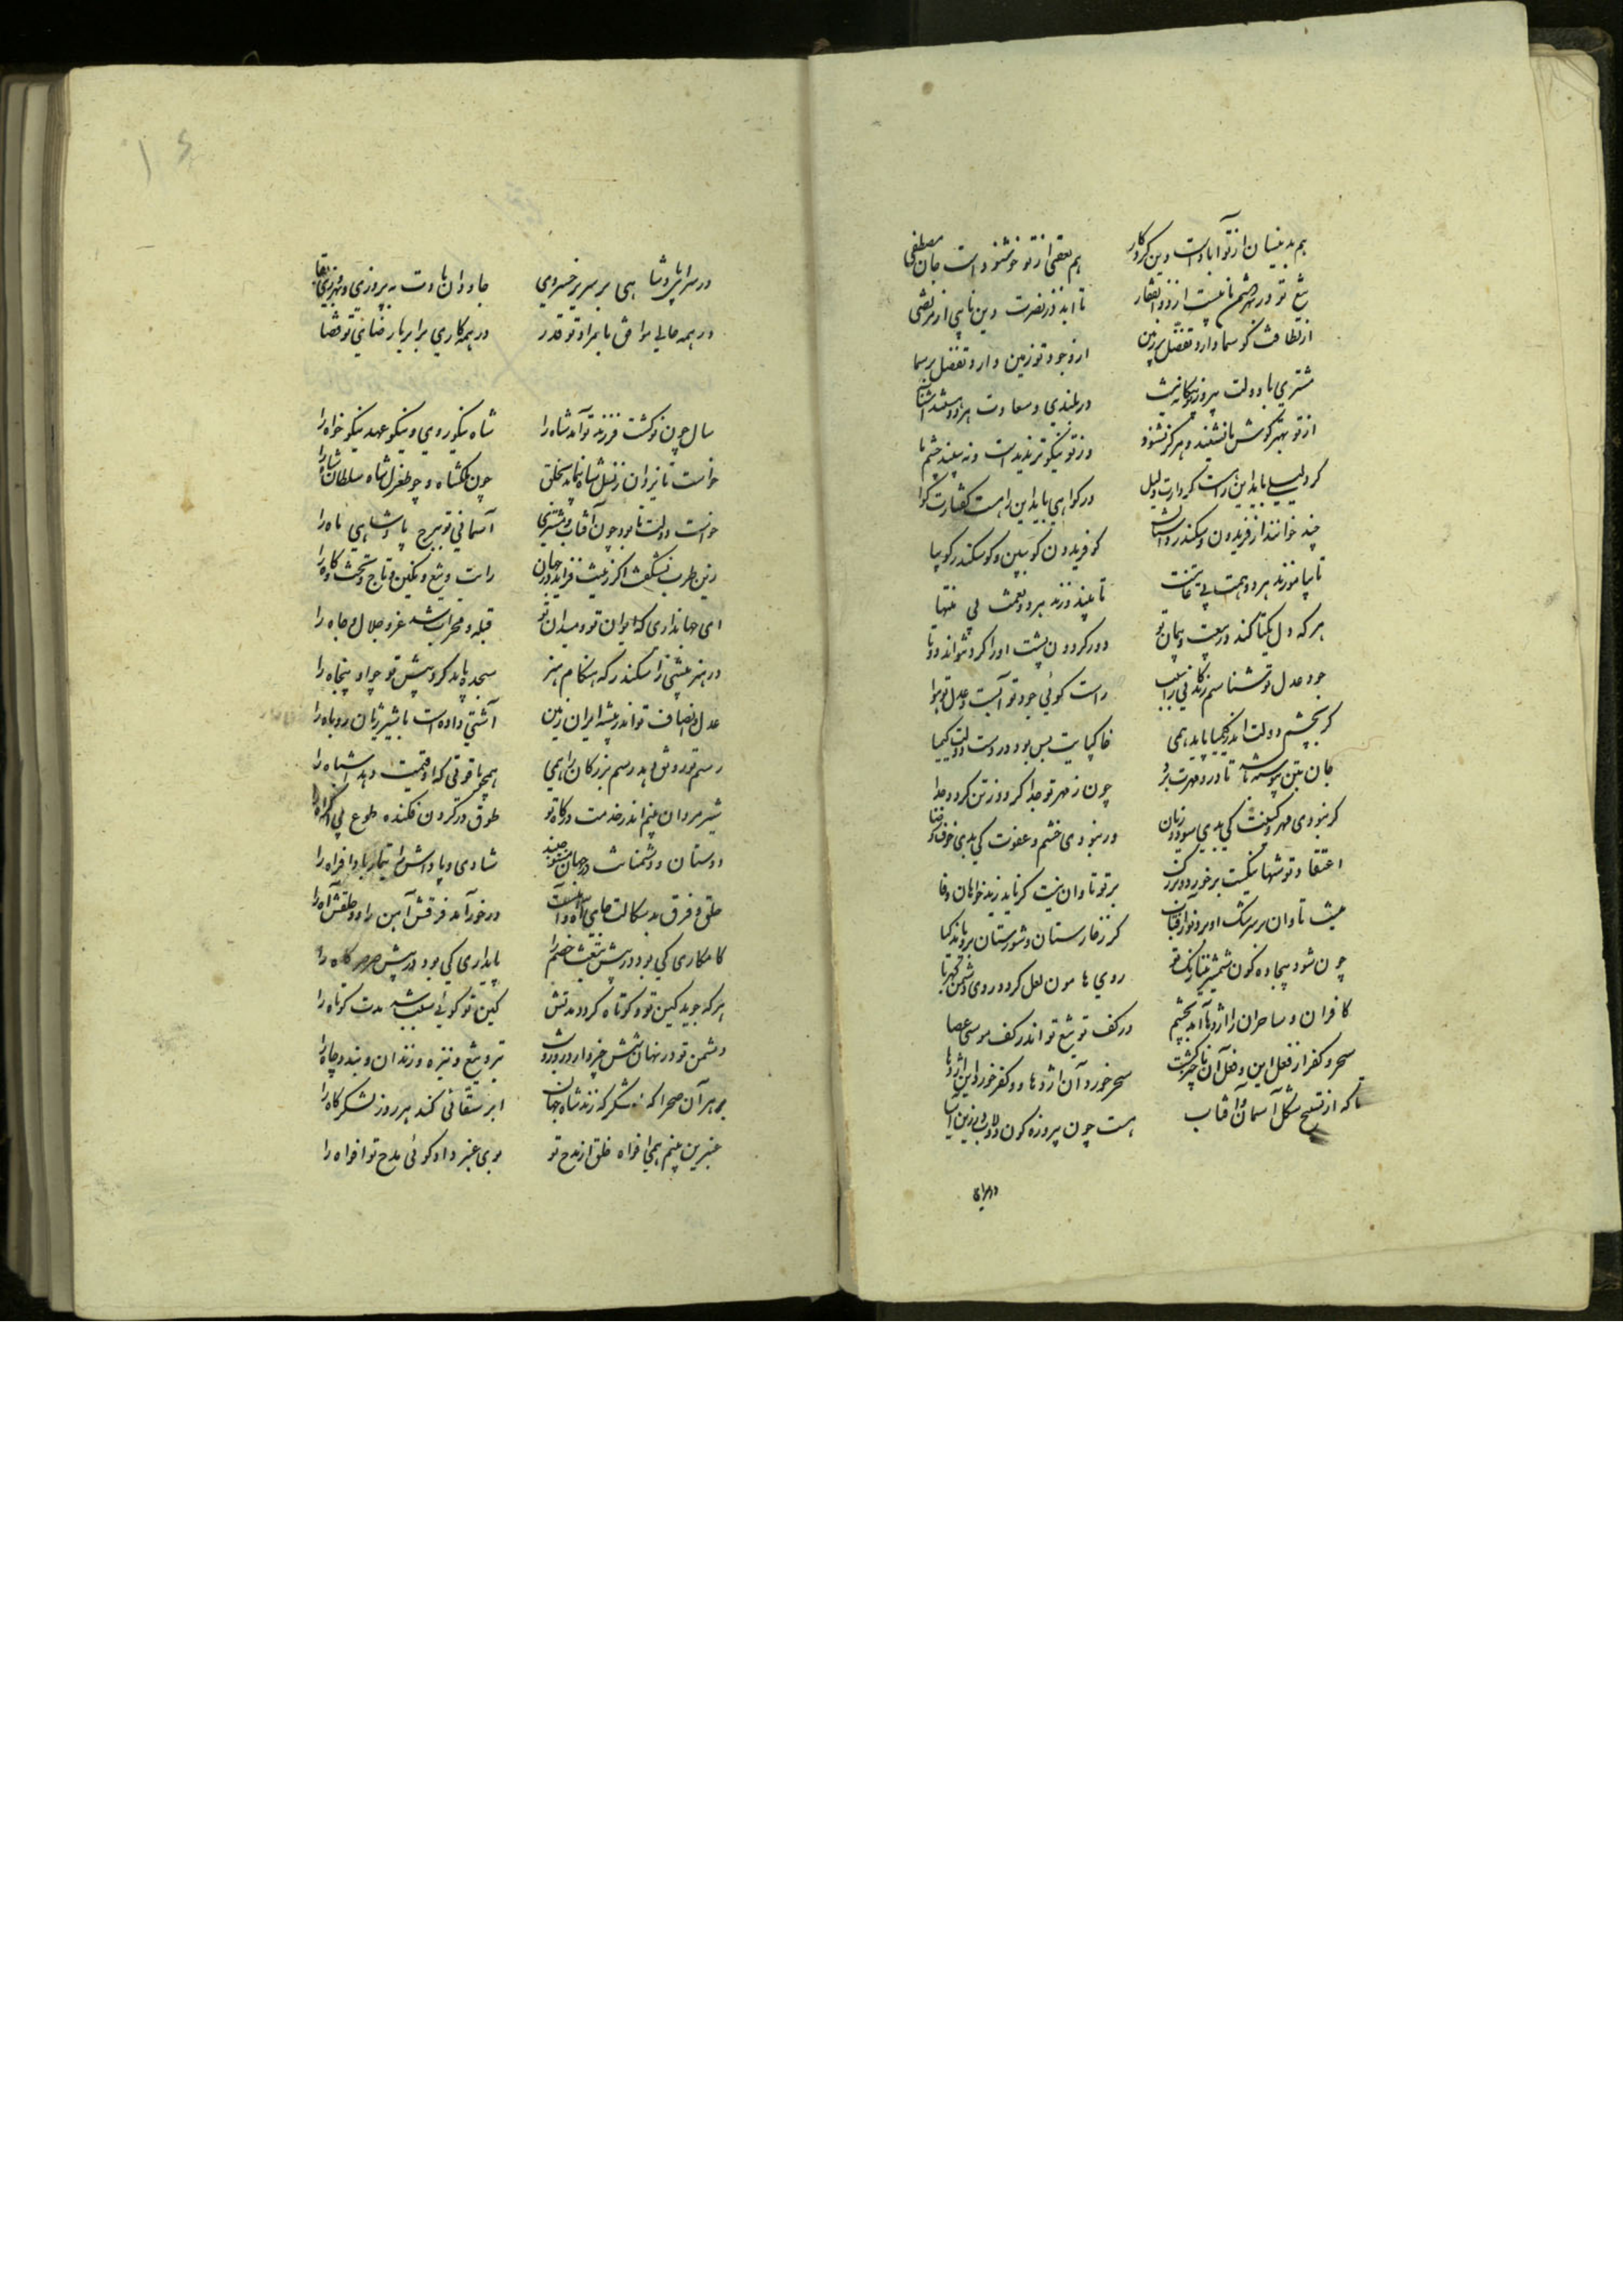 هم بدینسان از تو آبادست دین کردکار هم بعقبی از تو خوشنودست جان مصطفی
تیغ تو در هر ششم نایبست از ذوالفقار تا ابد در نصرت دین نایبی از مرتضی
از لطافت کو سما دارد تفضل بر زمین از وجود تو زمین دارد تفضل بر سما
مشتری با دولت پیروز در بلندی و سعادت هر دو
از تو بهتر گوش ما نشنید و هرگز نشنود وز تو نیکوتر ندیدست و نه بیند چشم ما
گر دلیلی باید این را هست کردارت دلیل ور گواهی باید این را هست گفتارت گوا
چند خوانند از فریدون و سکندر داستان کو فریدون کو ببین و کو سکندر کو بیا
تا بیاموزند هر دو همت بی تا ببیند زند هر دو نعمت بی منتها
هرکه دل یکتا کند در بیعت و پیمان تو دور گردون پشت او را کرد نتواند دوتا
جود و عدل تو شناسم زندگانی را سبب راست گوئی جود تو آبست و عدل تو هوا
گر بچشم دولت اندر کیمیا باید همی خاکپایت بس بود در دست دولت کیمیا
جان بتن پیوسته باشد تا درو مهرت بود چون ز مهر تو جدا گردد ز تن گردد جدا
گر نبودی مهر و کینت کی بدی سود و زیان ور نبودی خشم و عفوت کی بدی خوف و رجا
اعتقاد تو شها نیکیست برخورد و بزرگ بر تو تاوان نیست گر ناید ز بدخواهان وفا
نیست تاوان بر سرشک ابر و نور آفتاب گر ز خارستان و شورستان بروید گیا
چون شود بیجاده گون شمشیر مینا رنگ تو روی هامون لعل گردد روی دشمن کهربا
کافران و ساحران را اژدها آمد بچشم در کف تو تیغ تو اندر کف موسی عصا
سحر و کفر از فعل این و فعل آن ناچیز گشت سحر خورد آن اژدها و کفر خورد این اژدها
تا که از تسبیح شکل آسمان و آفتاب هست چون پیروزه گون دولاب و زرین آسیا
در سرای
۱۶
در سرای پادشاهی بر سریر خسروی جاودان بادت به پیروزی و بهروزی بقا
در همه حالی موافق با مراد تو قدر در همه کاری برابر با رضای تو قضا
سال چون نو گشت فرزند نو آمد شاه را شاه نیکو روی و نیکو عهد نیکو خواه را
خواست تا یزدان ز نسل شاه بنماید بخلق چون ملکشاه و چو طغرل شاه سلطان شاه را
خواست دولت تا بود چون آفتاب و مشتری آسمانی نو ببرج پادشاهی ماه را
زین طرب نشگفت اگر زینت فزاید در جهان رایت و تیغ و نگین و تاج و تخت و گاه را
ای جهانداری که ایوان تو و میدان تو قبله و محراب شد عز و جلال و جاه را
در هنر بیشی ز اسکندر که هنگام هنر سجده باید کرد پیش تو چو او پنجاه را
عدل و انصاف تو اندر بیشه ایران زمین آشتی دادست با شیر ژیان روباه را
رسم تو رونق دهد رسم بزرگان را همی همچو یاقوتی که او قیمت دهد اشباه را
شیر مردان بینم اندر خدمت درگاه تو طوق در گردن فکنده طوع بی اکراه را
دوستان و دشمنانت در جهان شادی و پاداش را تیمار و بادافراه را
حلق و فرق بدسگالت جای درخور آمد فرقش آهن را و حلقش آه را
کامکاری کی بود در پیش تیغت خصم را پایداری کی بود در پیش صرصر کاه را
هرکه جوید کین تو کوتاه گردد مدتش کین تو گوئی سبب شد مدت کوتاه را
دشمن تو در نهان تیر و تیغ و نیزه و زندان و بند و چاه را
بر هر آن صحرا که لشکرگه زند شاه جهان ابر سقائی کند هر روز لشکرگاه را
عنبرین بینم همی افواه خلق از مدح تو بوی عنبر داد گوئی مدح تو افواه را